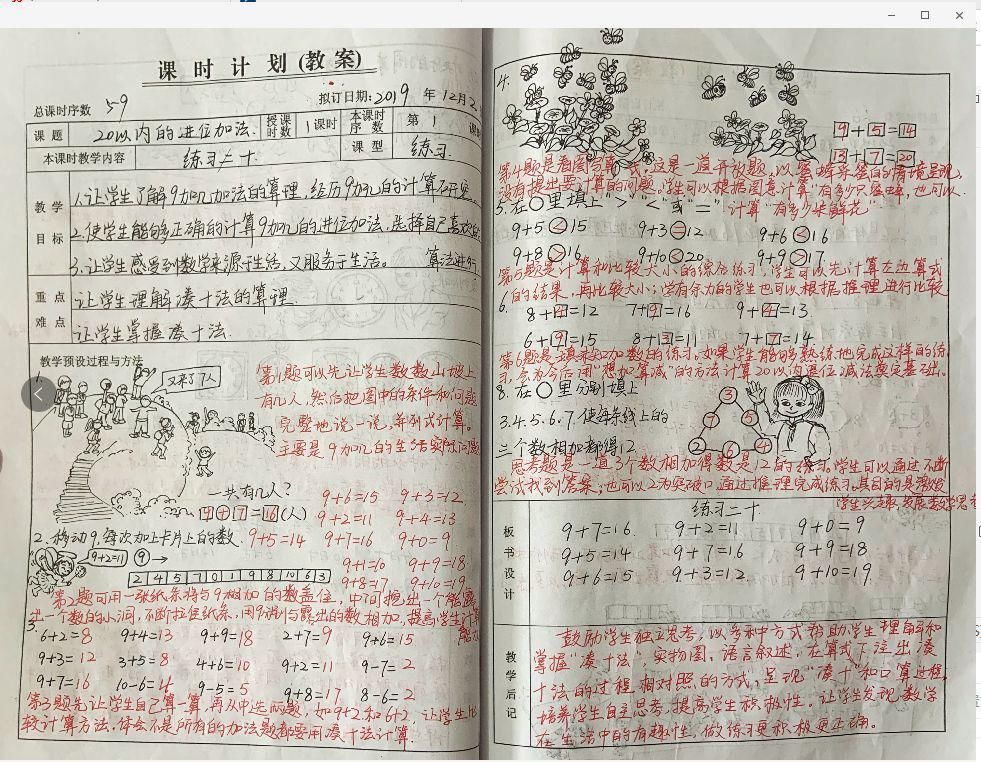 课时计划(教案)
总课时序数 59
拟订日期:2019年12月2
课题 20以内的进位加法. 授课时数 1课时 本课时序数 第1课时
本课时教学内容 练习二十. 课型 练习.
教学目标
1.让学生了解9加几加法的算理,经历9加几的计算
2.使学生能够正确的计算9加几的进位加法,选择自己喜欢的
算法进行
3.让学生感受到数学来源于生活,又服务于生活。
重点 让学生理解凑十法的算理.
难点 让学生掌握凑十法.
教学预设过程与方法
1.
又来了7人
第1题可以先让学生数数山坡上
有几人,然后把图中的条件和问题
完整地说一说,并列式计算。
主要是9加几的生活实际问题
一共有几人?
9+7=16(人)
9+6=15 9+3=12
9+2=11 9+4=13
2.移动9,每次加上卡片上的数. 9+5=14 9+7=16 9+0=9
9+2=11 9
9+1=10 9+9=18
2 4 5 7 0 1 9 8 10 6 3
9+8=17 9+10=19
第2题可用一张纸条将与9相加的数盖住,中间挖出一个能露
出一个数的小洞,不断拉住纸条,用9说与露出的数相加,提高学生计算
能力
3.
6+2=8 9+4=13 9+9=18 2+7=9 9+6=15
9+3=12 3+5=8 4+6=10 9+2=11 9-7=2
9+7=16 10-6=4 9-5=5 9+8=17 8-6=2
第3题先让学生自己算一算,再从中选两题,如9+2和6+2,让学生比
较计算方法.体会不是所有的加法题都要用凑十法计算.
4.
9+5=14
13+7=20
第4题是看图写算式,这是一道开放题,以蜜蜂采蜜的情境呈现,
没有提出要计算的问题。学生可以根据图意计算"有多少只蜜蜂,也可以
计算"有多少朵鲜花"
5.在○里填上">""<"或"="
9+5<15 9+3=12 9+6<16
9+8>16 9+10<20 9+9>17
第5题是计算和比较大小的综合练习,学生可以先计算左边算式
的结果,再比较大小;学有余力的学生也可以根据推理进行比较
6.
8+4=12 7+9=16 9+4=13
6+9=15 8+3=11 7+7=14
第6题是填未知加数的练习。如果学生能够熟练地完成这样的练
习,会为今后用"想加算减"的方法计算20以内退位减法奠定基础.
8.在○里分别填上
3.4.5.6.7.使每条线上的
三个数相加都得12
3
7 5
2 6 4
思考题是一道3个数相加得数是12的练习,学生可以通过不断
尝试找到答案;也可以2为突破口通过推理完成练习。其目的是激发
学生兴趣,发展数学思考
板书设计
练习二十.
9+7=16. 9+2=11 9+0=9
9+5=14 9+7=16 9+9=18
9+6=15 9+3=12 9+10=19
教学后记
鼓励学生独立思考,以多种方式帮助学生理解和
掌握"凑十法",实物图、语言叙述、在算式下注出凑
十法的过程相对照的方式,呈现"凑十"和口算过程,
培养学生自主思考,提高学生积极性。让学生发现数学
在生活中的有趣性,做练习更积极更正确。